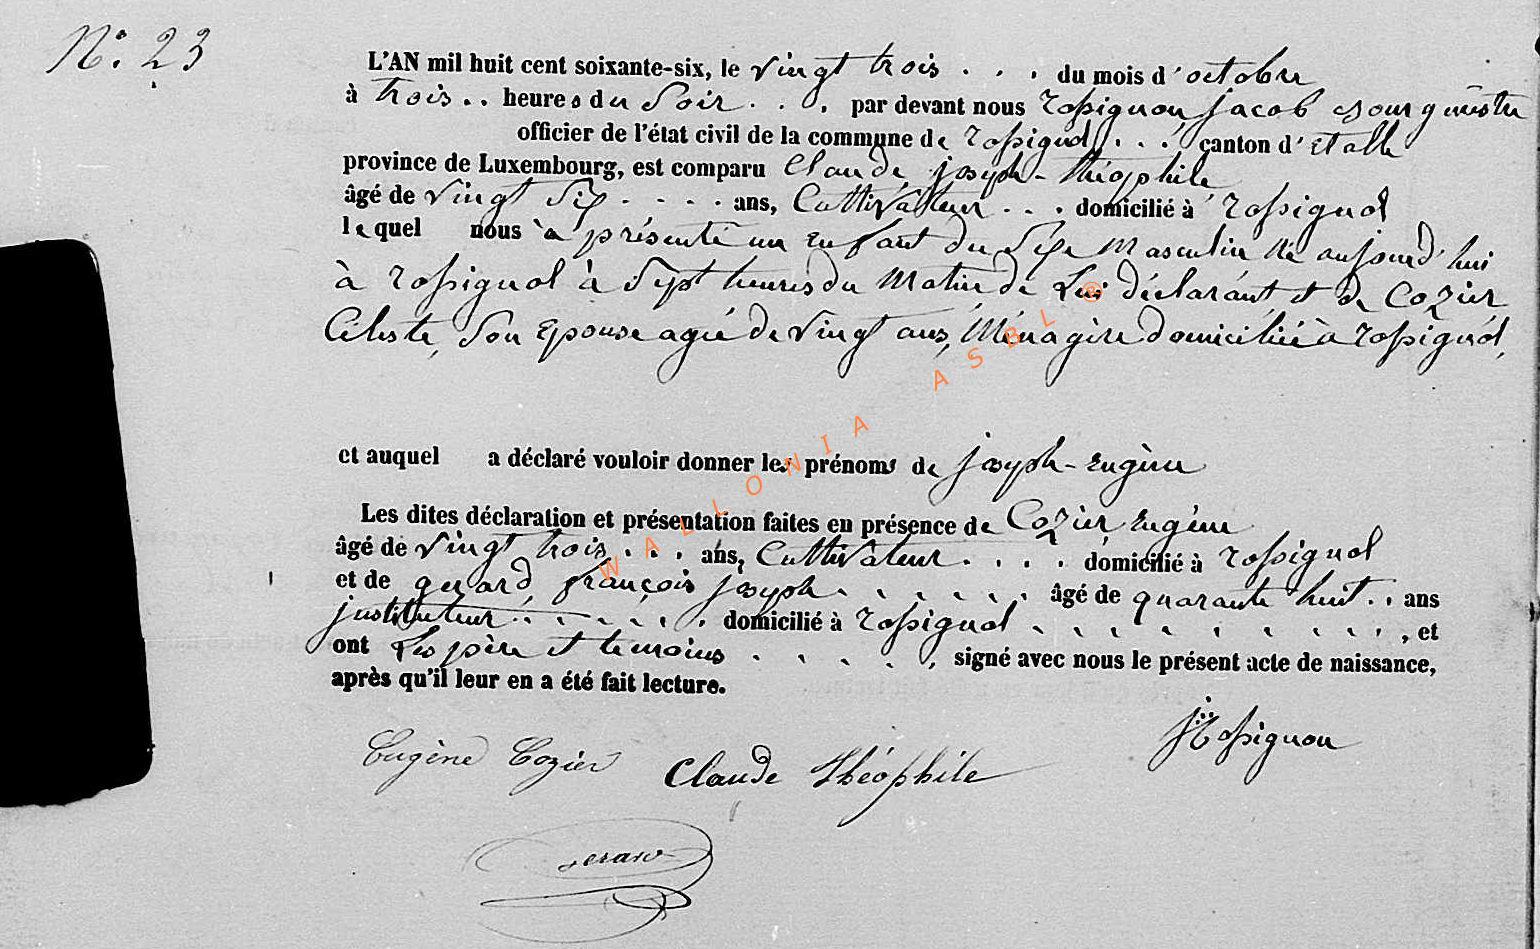 N°. 23
L'AN mil huit cent soixante-six, le vingt trois . . . du mois d'octobre
à trois . . heures du Soir . . . par devant nous rossignon jacob Bourgmestre
officier de l'état civil de la commune de rossignol . . . canton d'Etalle
province de Luxembourg, est comparu Claude, joseph-théophile
âgé de vingt Six . . . . ans, Cultivateur . . . domicilié à rossignol
lequel nous a présenté un Enfant du Sexe Masculin Né aujourd'hui
à rossignol à Sept heures du Matin de Lui déclarant et de Cozier
Céleste, Son Epouse agée de vingt ans, Ménagère domiciliée à rossignol,
et auquel a déclaré vouloir donner les prénoms de joseph-Eugène
Les dites déclaration et présentation faites en présence de Cozier Eugène
âgé de vingt trois . . . ans, Cultivateur . . . . domicilié à rossignol
et de gerard, françois joseph . . . . . . âgé de quarante huit . . ans
justituteur . . . . . . domicilié à rossignol . . . . . . . . , et
ont Les père et temoins . . . . . signé avec nous le présent acte de naissance,
après qu'il leur en a été fait lecture.
JRossignon
Eugène Cozier Claude Théophile
Gerard
WALLONIA ASBL ®